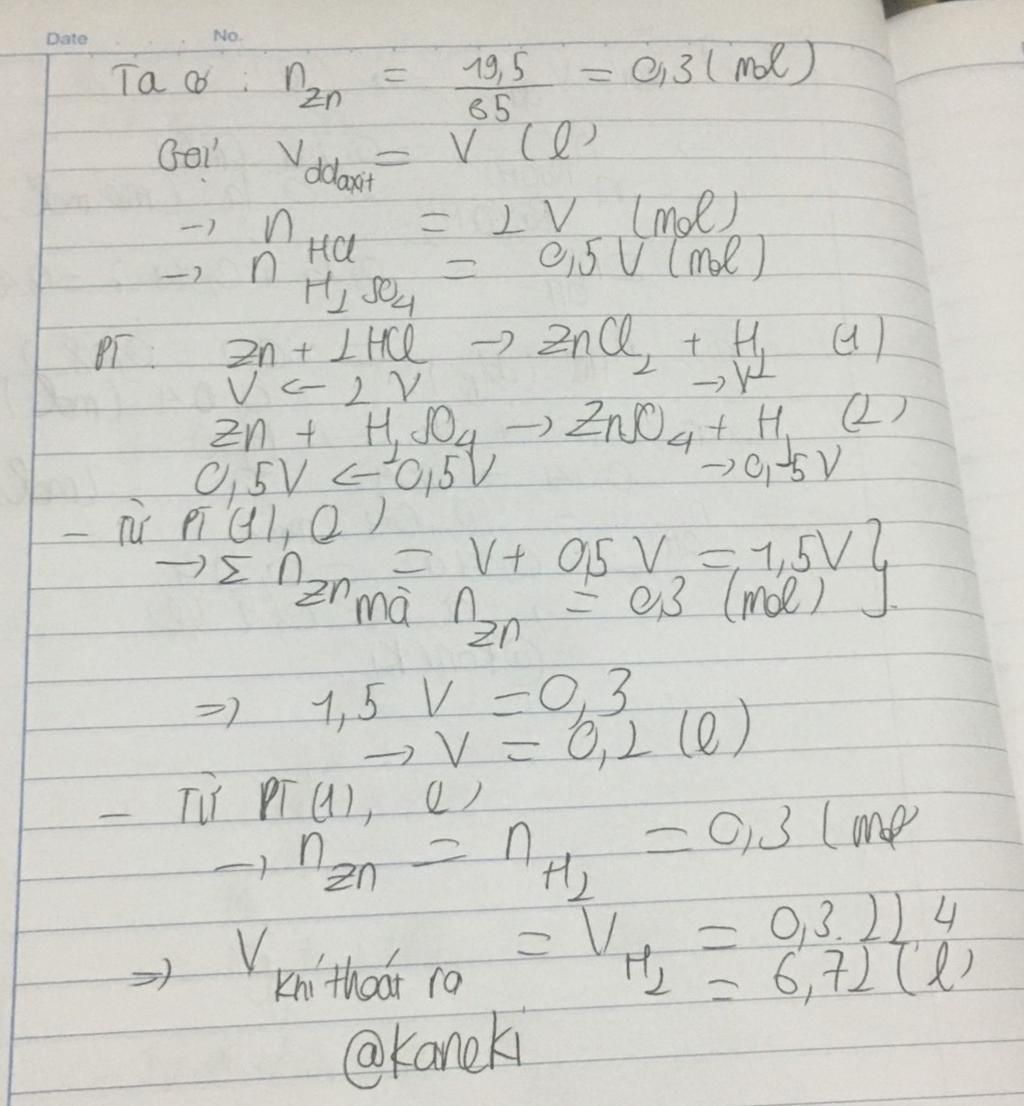 Date No.
Ta có : n Zn = 19,5 / 65 = 0,3 (mol)
Gọi V ddaxit = V (l)
→ n HCl = 2V (mol)
→ n H2SO4 = 0,5V (mol)
PT: Zn + 2HCl → ZnCl2 + H2 (1)
V ← 2V → V
Zn + H2SO4 → ZnSO4 + H2 (2)
0,5V ← 0,5V → 0,5V
- Từ PT (1), (2)
→ Σ n Zn = V + 0,5V = 1,5V }
mà n Zn = 0,3 (mol) }
⇒ 1,5 V = 0,3
→ V = 0,2 (l)
- Từ PT (1), (2)
→ n Zn = n H2 = 0,3 (mol
⇒ V khí thoát ra = V H2 = 0,3. 22,4
= 6,72 (l)
@kaneki